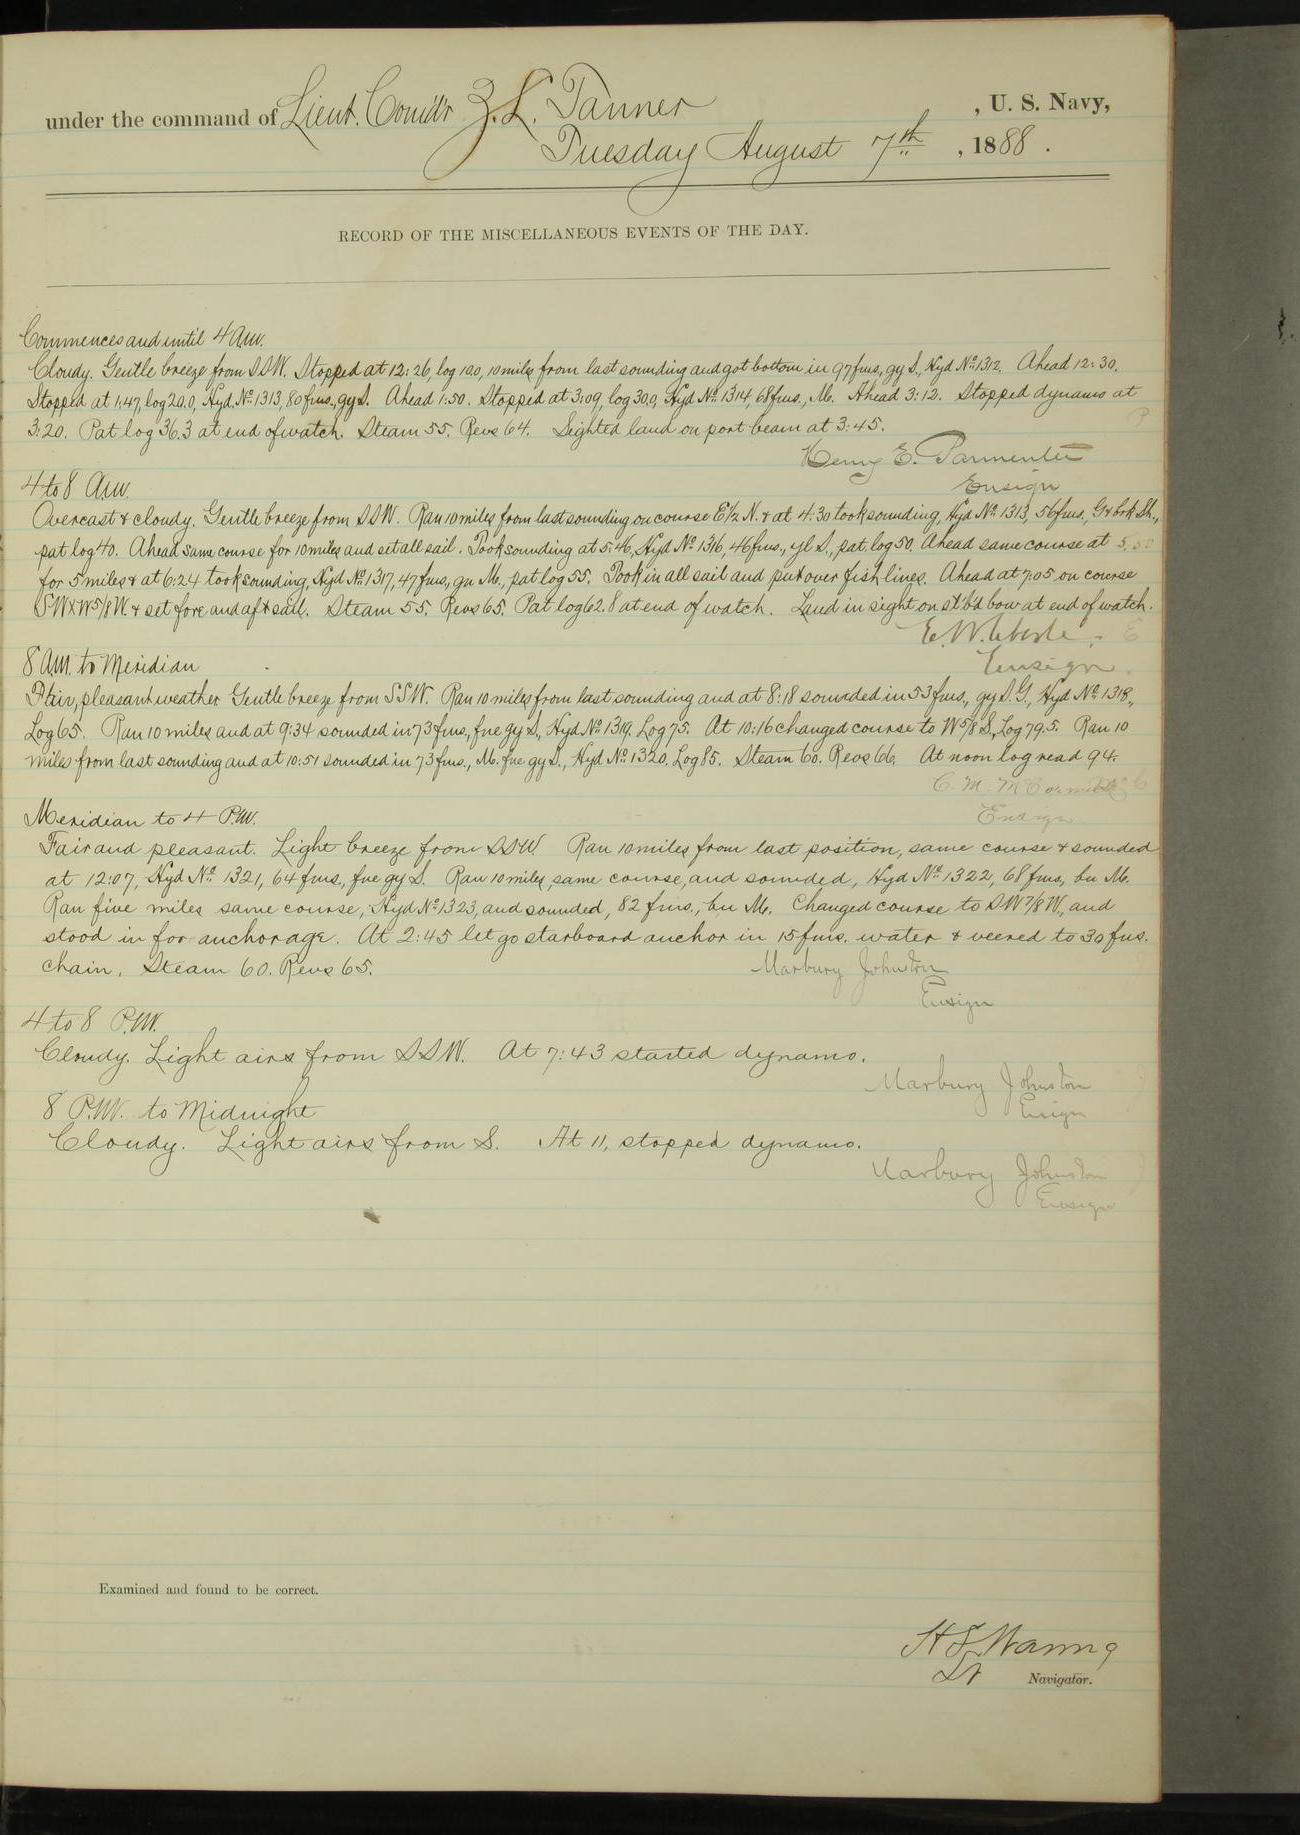 under the command of Lieut. Comd'r Z. L. Tanner , U. S. Navy,
Tuesday August 7th , 1888 .
RECORD OF THE MISCELLANEOUS EVENTS OF THE DAY.
Commences and until 4 A.M.
Cloudy. Gentle breeze from SSW. Stopped at 12:26, log 10.0, 10 miles from last sounding and got bottom in 97 fms, gy S., Hyd No. 1312. Ahead 12:30.
Stopped at 1:47, log 20.0, Hyd. No. 1313, 80 fms., gy S. Ahead 1:50. Stopped at 3:09, log 30.0, Hyd No. 1314, 68 fms., M. Ahead 3:12. Stopped dynamo at
3:20. Pat log 36.3 at end of watch. Steam 55. Revs 64. Sighted land on port beam at 3:45.
Henry E. Parmenter
Ensign
4 to 8 A.M.
Overcast & cloudy. Gentle breeze from SSW. Ran 10 miles from last sounding on course E 1/2 N. & at 4:30 took sounding, Hyd No. 1313, 56 fms., G & brk Sh.,
pat log 40. Ahead same course for 10 miles and set all sail. Took sounding at 5:46, Hyd No. 1316, 46 fms., yl S., pat. log 50. Ahead same course at
for 5 miles & at 6:24 took sounding, Hyd No. 1317, 47 fms., gn M., pat log 55. Took in all sail and put over fish lines. Ahead at 7:05 on course
SWxW 5/8 W. & set fore and aft sail. Steam 55. Revs 65. Pat log 62.8 at end of watch. Land in sight on st'b'd bow at end of watch.
E. W. Eberle.
Ensign.
8 A.M. to Meridian
Fair, pleasant weather Gentle breeze from SSW. Ran 10 miles from last sounding and at 8:18 sounded in 53 fms., gy S. G., Hyd No. 1318.,
Log 65. Ran 10 miles and at 9:34 sounded in 73 fms., fne gy S., Hyd No. 1319. Log 75. At 10:16 changed course to W 5/8 S., Log 79.5. Ran 10
miles from last sounding and at 10:51 sounded in 73 fms., M. fne gy S., Hyd No. 1320. Log 85. Steam 60. Revs 66. At noon log read 94.
C. M. McCormick
Ensign
Meridian to 4 P.M.
Fair and pleasant. Light breeze from SSW. Ran 10 miles from last position, same course & sounded
at 12:07, Hyd No. 1321, 64 fms., fne gy S. Ran 10 miles, same course, and sounded, Hyd No. 1322, 68 fms, bu M.
Ran five miles same course, Hyd No. 1323, and sounded, 82 fms., bu M. Changed course to SW 7/8 W., and
stood in for anchorage. At 2:45 let go starboard anchor in 15 fms. water & veered to 30 fms.
chain. Steam 60. Revs 65.
Marbury Johnston
Ensign
4 to 8 P.M.
Cloudy. Light airs from SSW. At 7:43 started dynamo.
Marbury Johnston
Ensign
8 P.M. to Midnight
Cloudy. Light airs from S. At 11, stopped dynamo.
Marbury Johnston
Ensign
Examined and found to be correct.
Lt Navigator.